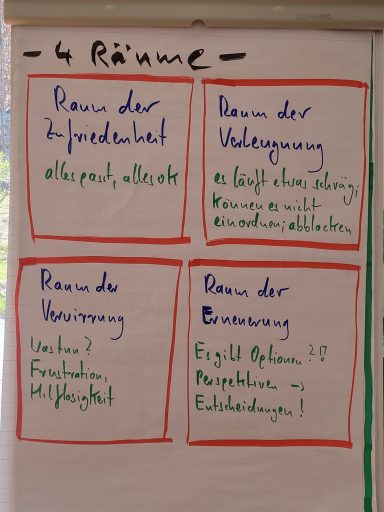 - 4 Räume -
Raum der
Zufriedenheit
alles passt, alles ok
Raum der
Verleugnung
es läuft etwas schräg;
können es nicht
einordnen; abblocken
Raum der
Verwirrung
Was tun?
Frustration,
Hilflosigkeit
Raum der
Erneuerung
Es gibt Optionen?!?
Perspektiven →
Entscheidungen!